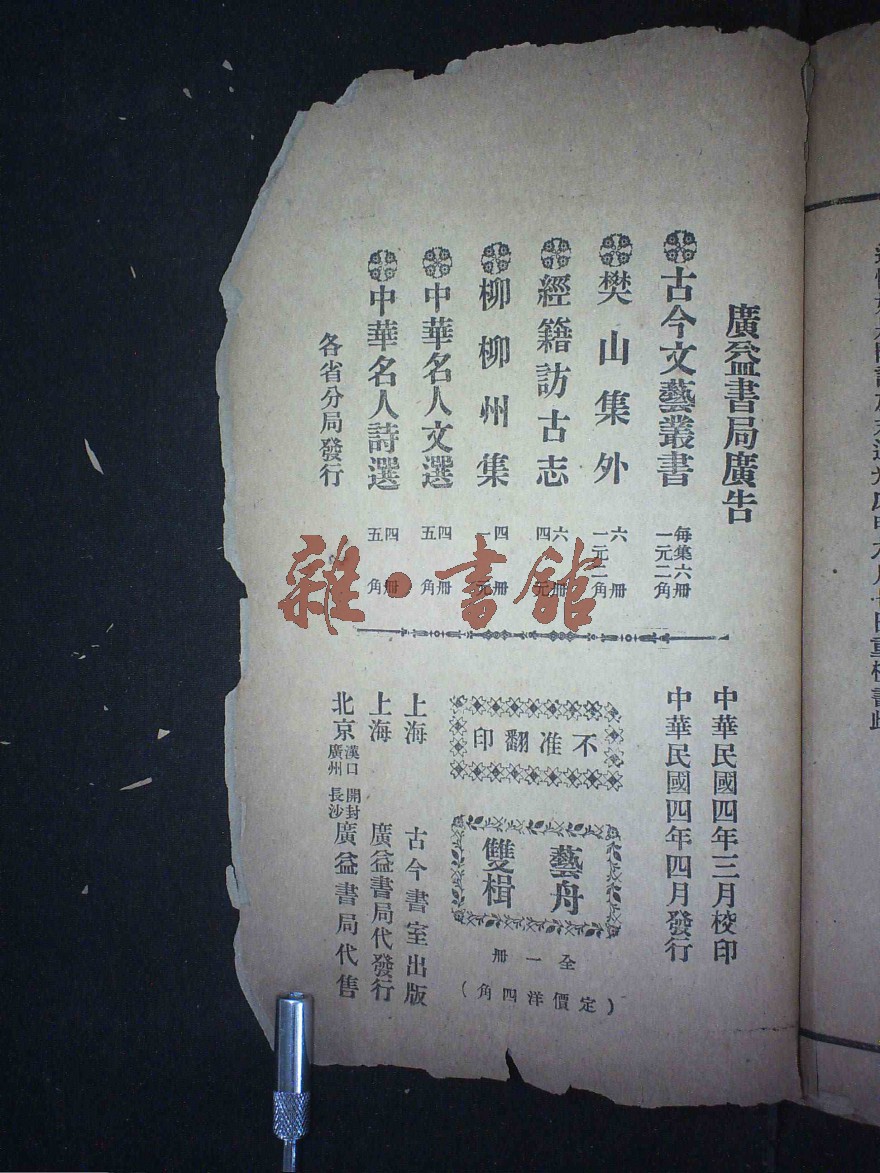 廣益書局廣告
古今文藝叢書 每集六册 一元二角
樊山集外 六册 一元二角
經籍訪古志 六册 四元
柳柳州集 四册 一元
中華名人文選 四册 五角
中華名人詩選 四册 五角
各省分局發行
雜·書館
中華民國四年三月校印
中華民國四年四月發行
不准翻印
藝舟
雙楫
全一册
(定價洋四角)
上海 古今書室出版
上海 廣益書局代發行
北京 漢口 廣州 開封 長沙 廣益書局代售